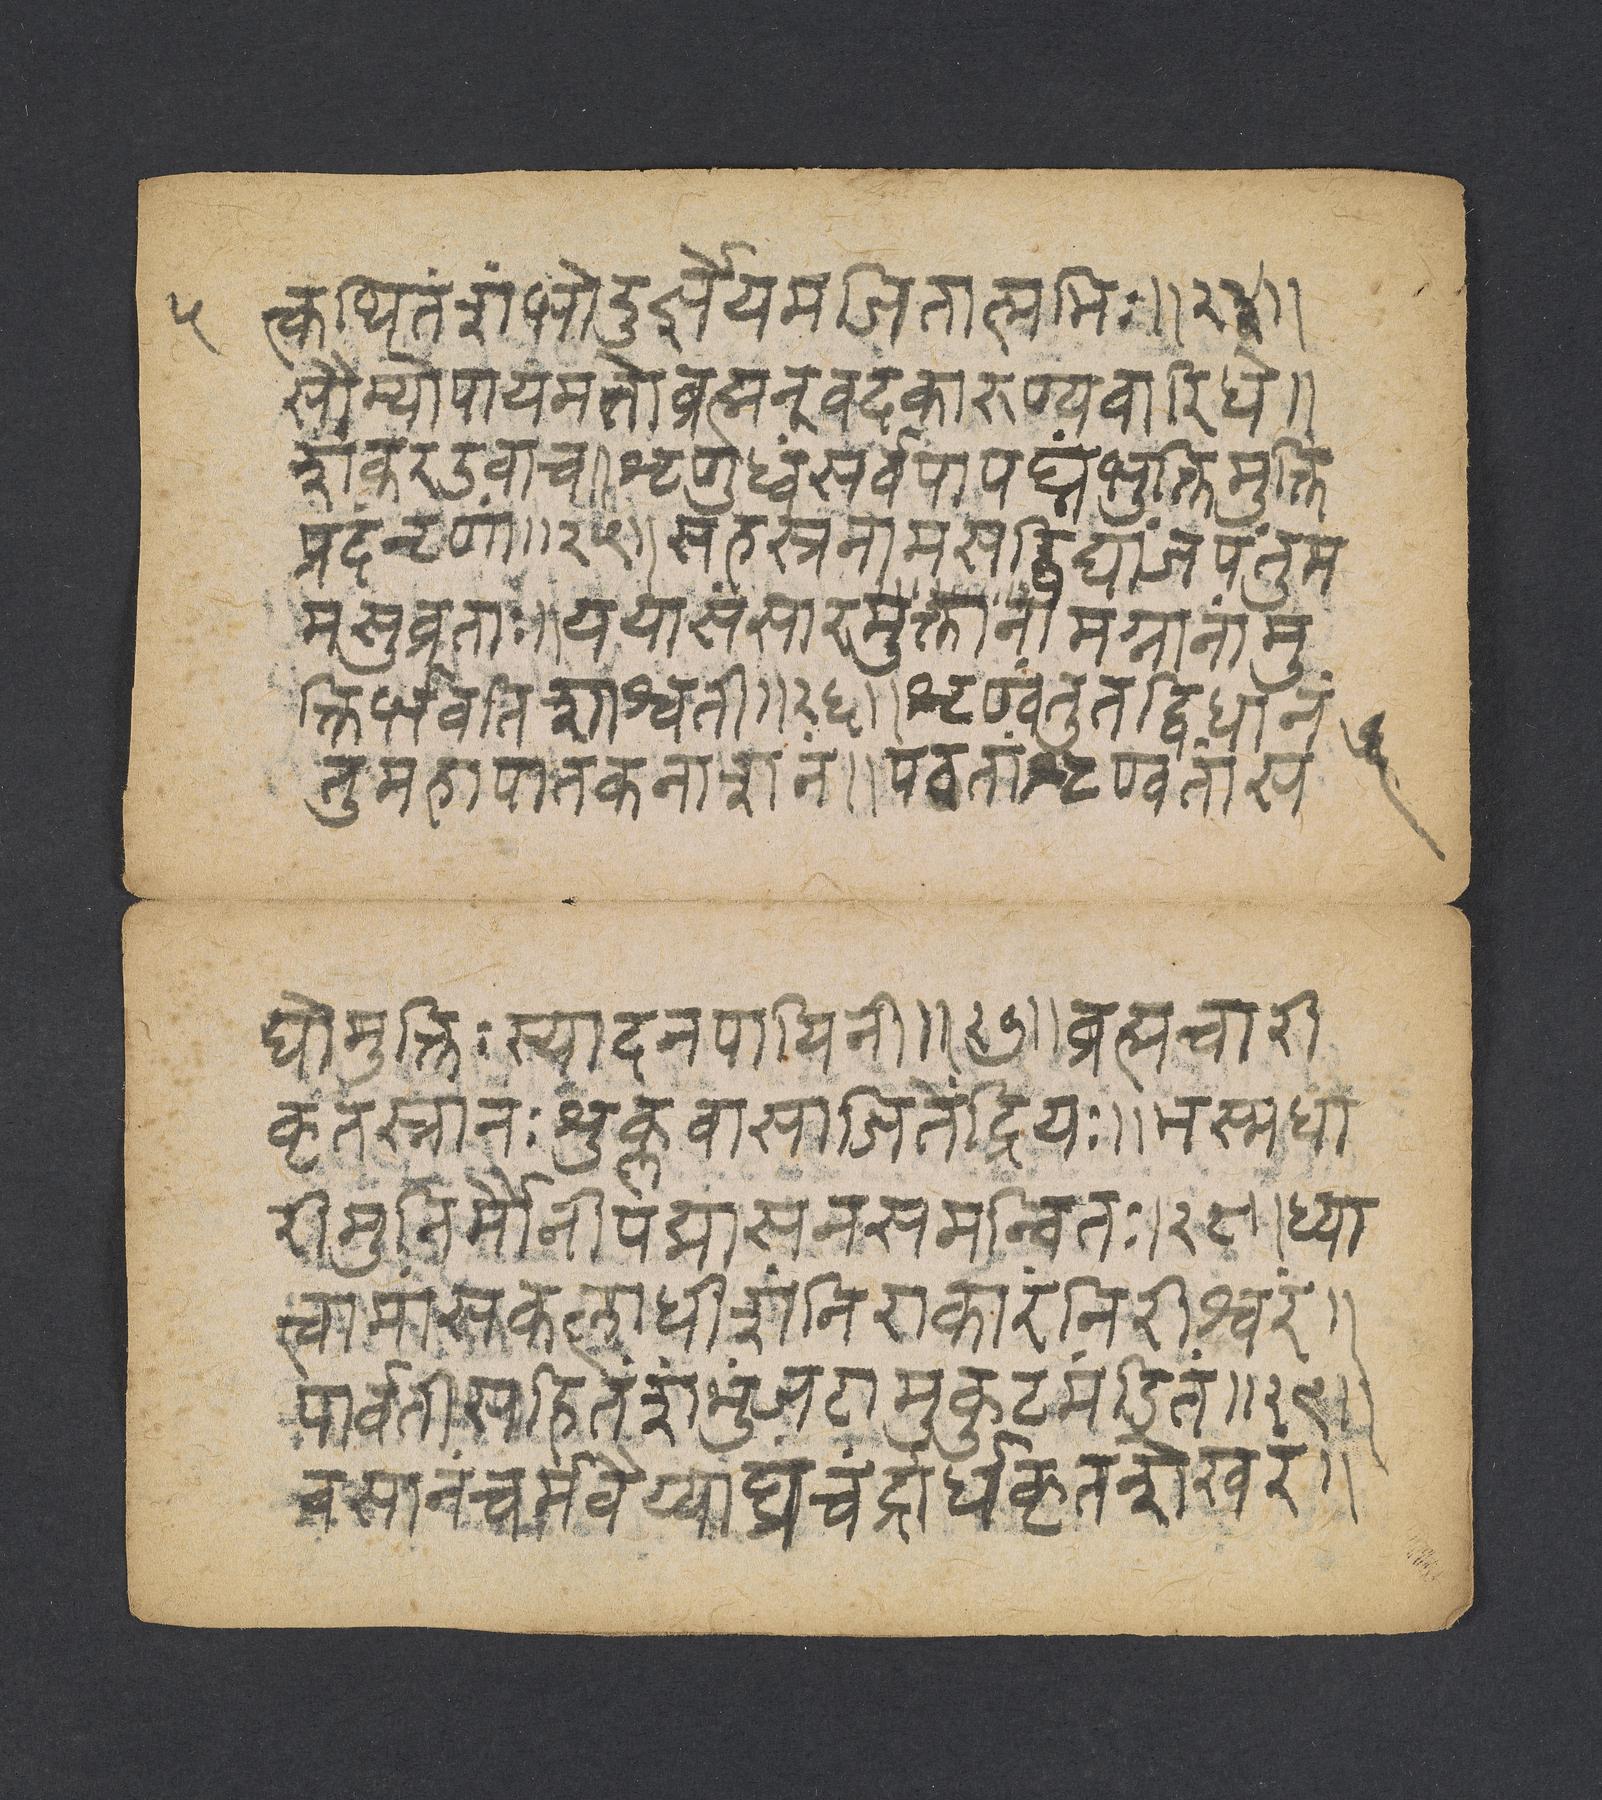 ५
त्कथितंशंभोदुर्ज्ञेयमजितात्मभिः॥२४॥
सौम्योपायमतोब्रह्मन्वदकारुण्यवारिधे॥
शंकरउवाच॥शृणुध्वंसर्वपापघ्नंभुक्तिमुक्ति
प्रदंनृणां॥२५॥सहस्त्रनामसद्विद्यांजपंतुम
मसुव्रताः॥ययासंसारमुक्तानांमग्नानांमु
क्तिर्भवतिशाश्वती॥२६॥शृण्वंतुतद्विधानं
तुमहापातकनाशनं॥पठतांशृण्वतांस
५
द्योमुक्तिःस्यादनपायिनी॥२७॥ब्रह्मचारी
कृतस्नानःशुक्लवासाजितेंद्रियः॥भस्मधा
रीमुनिर्मौनीपद्मासनसमन्वितः॥२८॥ध्या
त्वामांसकलाधीशंनिराकारंनिरीश्वरं॥
पार्वतीसहितंशंभुंजटामुकुटमंडितं॥२९॥
वसानंचर्मवैय्याघ्रंचंद्रार्धकृतशेखरं॥